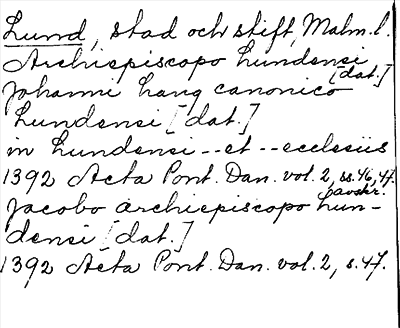 Lund, stad och stift, Malm. l.
Archiepiscopo lundensi
[dat.]
Johanni hang canonico
lundensi [dat.]
in lundensi -- et -- ecclesiis
1392 Acta Pont. Dan. vol. 2, ss. 46, 47.
avskr.
Jacobo archiepiscopo lun-
densi [dat.]
1392 Acta Pont. Dan. vol. 2, s. 47.